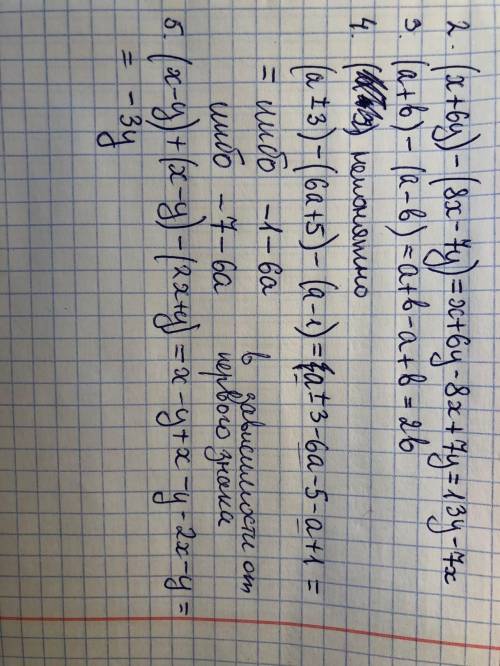 2. (x+6y)-(8x-7y)=x+6y-8x+7y=13y-7x
3. (a+b)-(a-b)=a+b-a+b=2b
4. непонятно
(a±3)-(6a+5)-(a-1)=a±3-6a-5-a+1=
= либо -1-6a в зависимости от
либо -7-6a первого знака
5. (x-y)+(x-y)-(2x+y)=x-y+x-y-2x-y=
= -3y